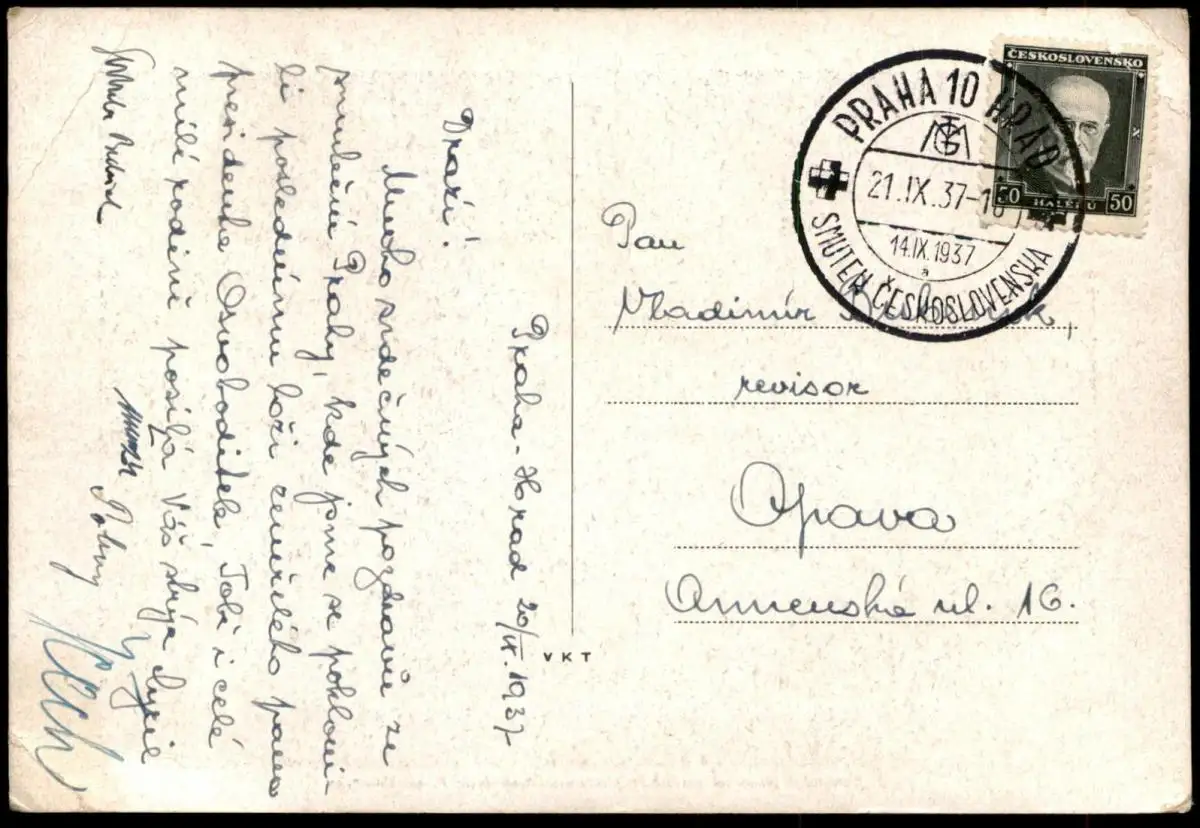 Praha-Hrad 20/IX. 1937
Drazí!
Mnoho srdečných pozdravů ze
smuteční Prahy, kde jsme se pokloni-
li poslednímu loži zemřelého pana
presidenta Osvoboditele, Tobi i celé
milé rodině posílá Váš strýc Cyril
ČESKOSLOVENSKO
50 HALÉŘŮ 50
PRAHA 10 HRAD
TGM
21.IX.37-1
14.IX.1937
a
SMUTEK ČESKOSLOVENSKA
Pan
Vladimír
revisor
Opava
Annenská ul. 16.
VKT